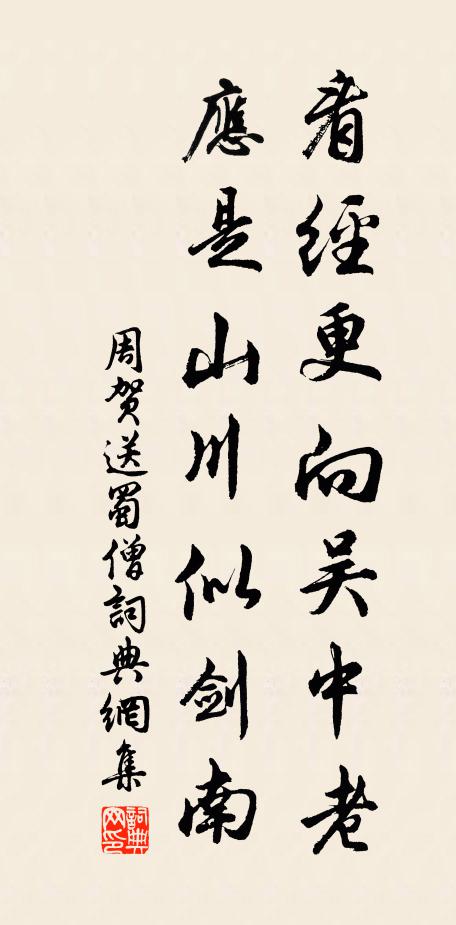 看經更向吴中老
應是山川似劍南
周賀送蜀僧詞典網集
詞典
网印